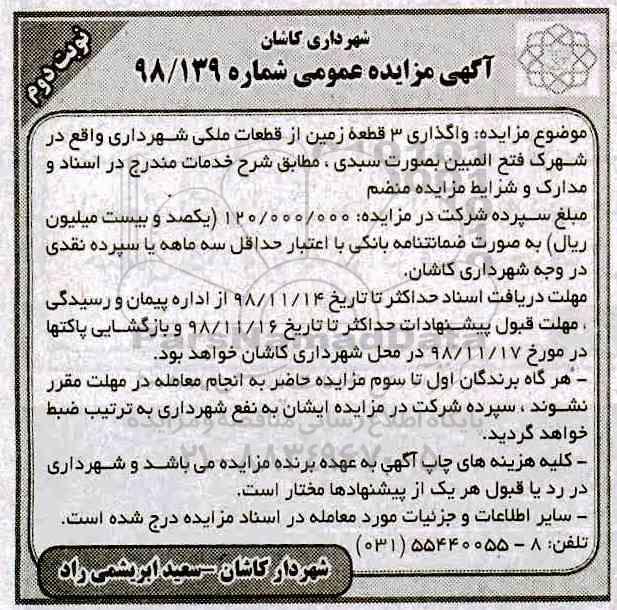 شهرداری کاشان
آگهی مزایده عمومی شماره ۹۸/۱۳۹
نوبت دوم
موضوع مزایده: واگذاری ۳ قطعهٔ زمین از قطعات ملکی شهرداری واقع در
شهرک فتح المبین بصورت سبدی ، مطابق شرح خدمات مندرج در اسناد و
مدارک و شرایط مزایده منضم
مبلغ سپرده شرکت در مزایده: ۱۲۰/۰۰۰/۰۰۰ (یکصد و بیست میلیون
ریال) به صورت ضمانتنامه بانکی با اعتبار حداقل سه ماهه یا سپرده نقدی
در وجه شهرداری کاشان.
مهلت دریافت اسناد حداکثر تا تاریخ ۹۸/۱۱/۱۴ از اداره پیمان و رسیدگی
، مهلت قبول پیشنهادات حداکثر تا تاریخ ۹۸/۱۱/۱۶ و بازگشایی پاکتها
در مورخ ۹۸/۱۱/۱۷ در محل شهرداری کاشان خواهد بود.
- هر گاه برندگان اول تا سوم مزایده حاضر به انجام معامله در مهلت مقرر
نشوند ، سپرده شرکت در مزایده ایشان به نفع شهرداری به ترتیب ضبط
خواهد گردید.
- کلیه هزینه های چاپ آگهی به عهده برنده مزایده می باشد و شهرداری
در رد یا قبول هر یک از پیشنهادها مختار است.
- سایر اطلاعات و جزئیات مورد معامله در اسناد مزایده درج شده است.
تلفن: ۸ - ۵۵۴۴۰۰۵۵ (۰۳۱)
شهردار کاشان - سعید ابریشمی راد
ParsNamadData
پایگاه اطلاع رسانی مناقصه و مزایده